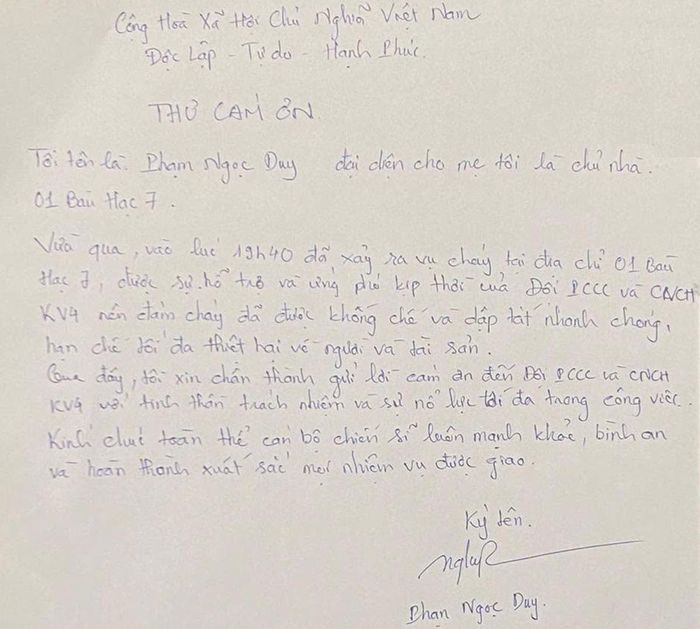 Cộng Hoà Xã Hội Chủ Nghĩa Việt Nam
Độc Lập - Tự do - Hạnh Phúc.
THƯ CẢM ƠN
Tôi tên là: Phạm Ngọc Duy đại diện cho mẹ tôi là chủ nhà.
01 Bàu Hạc 7.
Vừa qua, vào lúc 19h40 đã xảy ra vụ cháy tại địa chỉ 01 Bàu
Hạc 7, được sự hỗ trợ và ứng phó kịp thời của Đội PCCC và CNCH
KV4 nên đám cháy đã được khống chế và dập tắt nhanh chóng,
hạn chế tối đa thiệt hại về người và tài sản.
Qua đây, tôi xin chân thành gửi lời cảm ơn đến Đội PCCC và CNCH
KV4 với tinh thần trách nhiệm và sự nỗ lực tối đa trong công việc.
Kính chúc toàn thể cán bộ chiến sĩ luôn mạnh khoẻ, bình an
và hoàn thành xuất sắc mọi nhiệm vụ được giao.
Ký tên.
Phan Ngọc Duy.